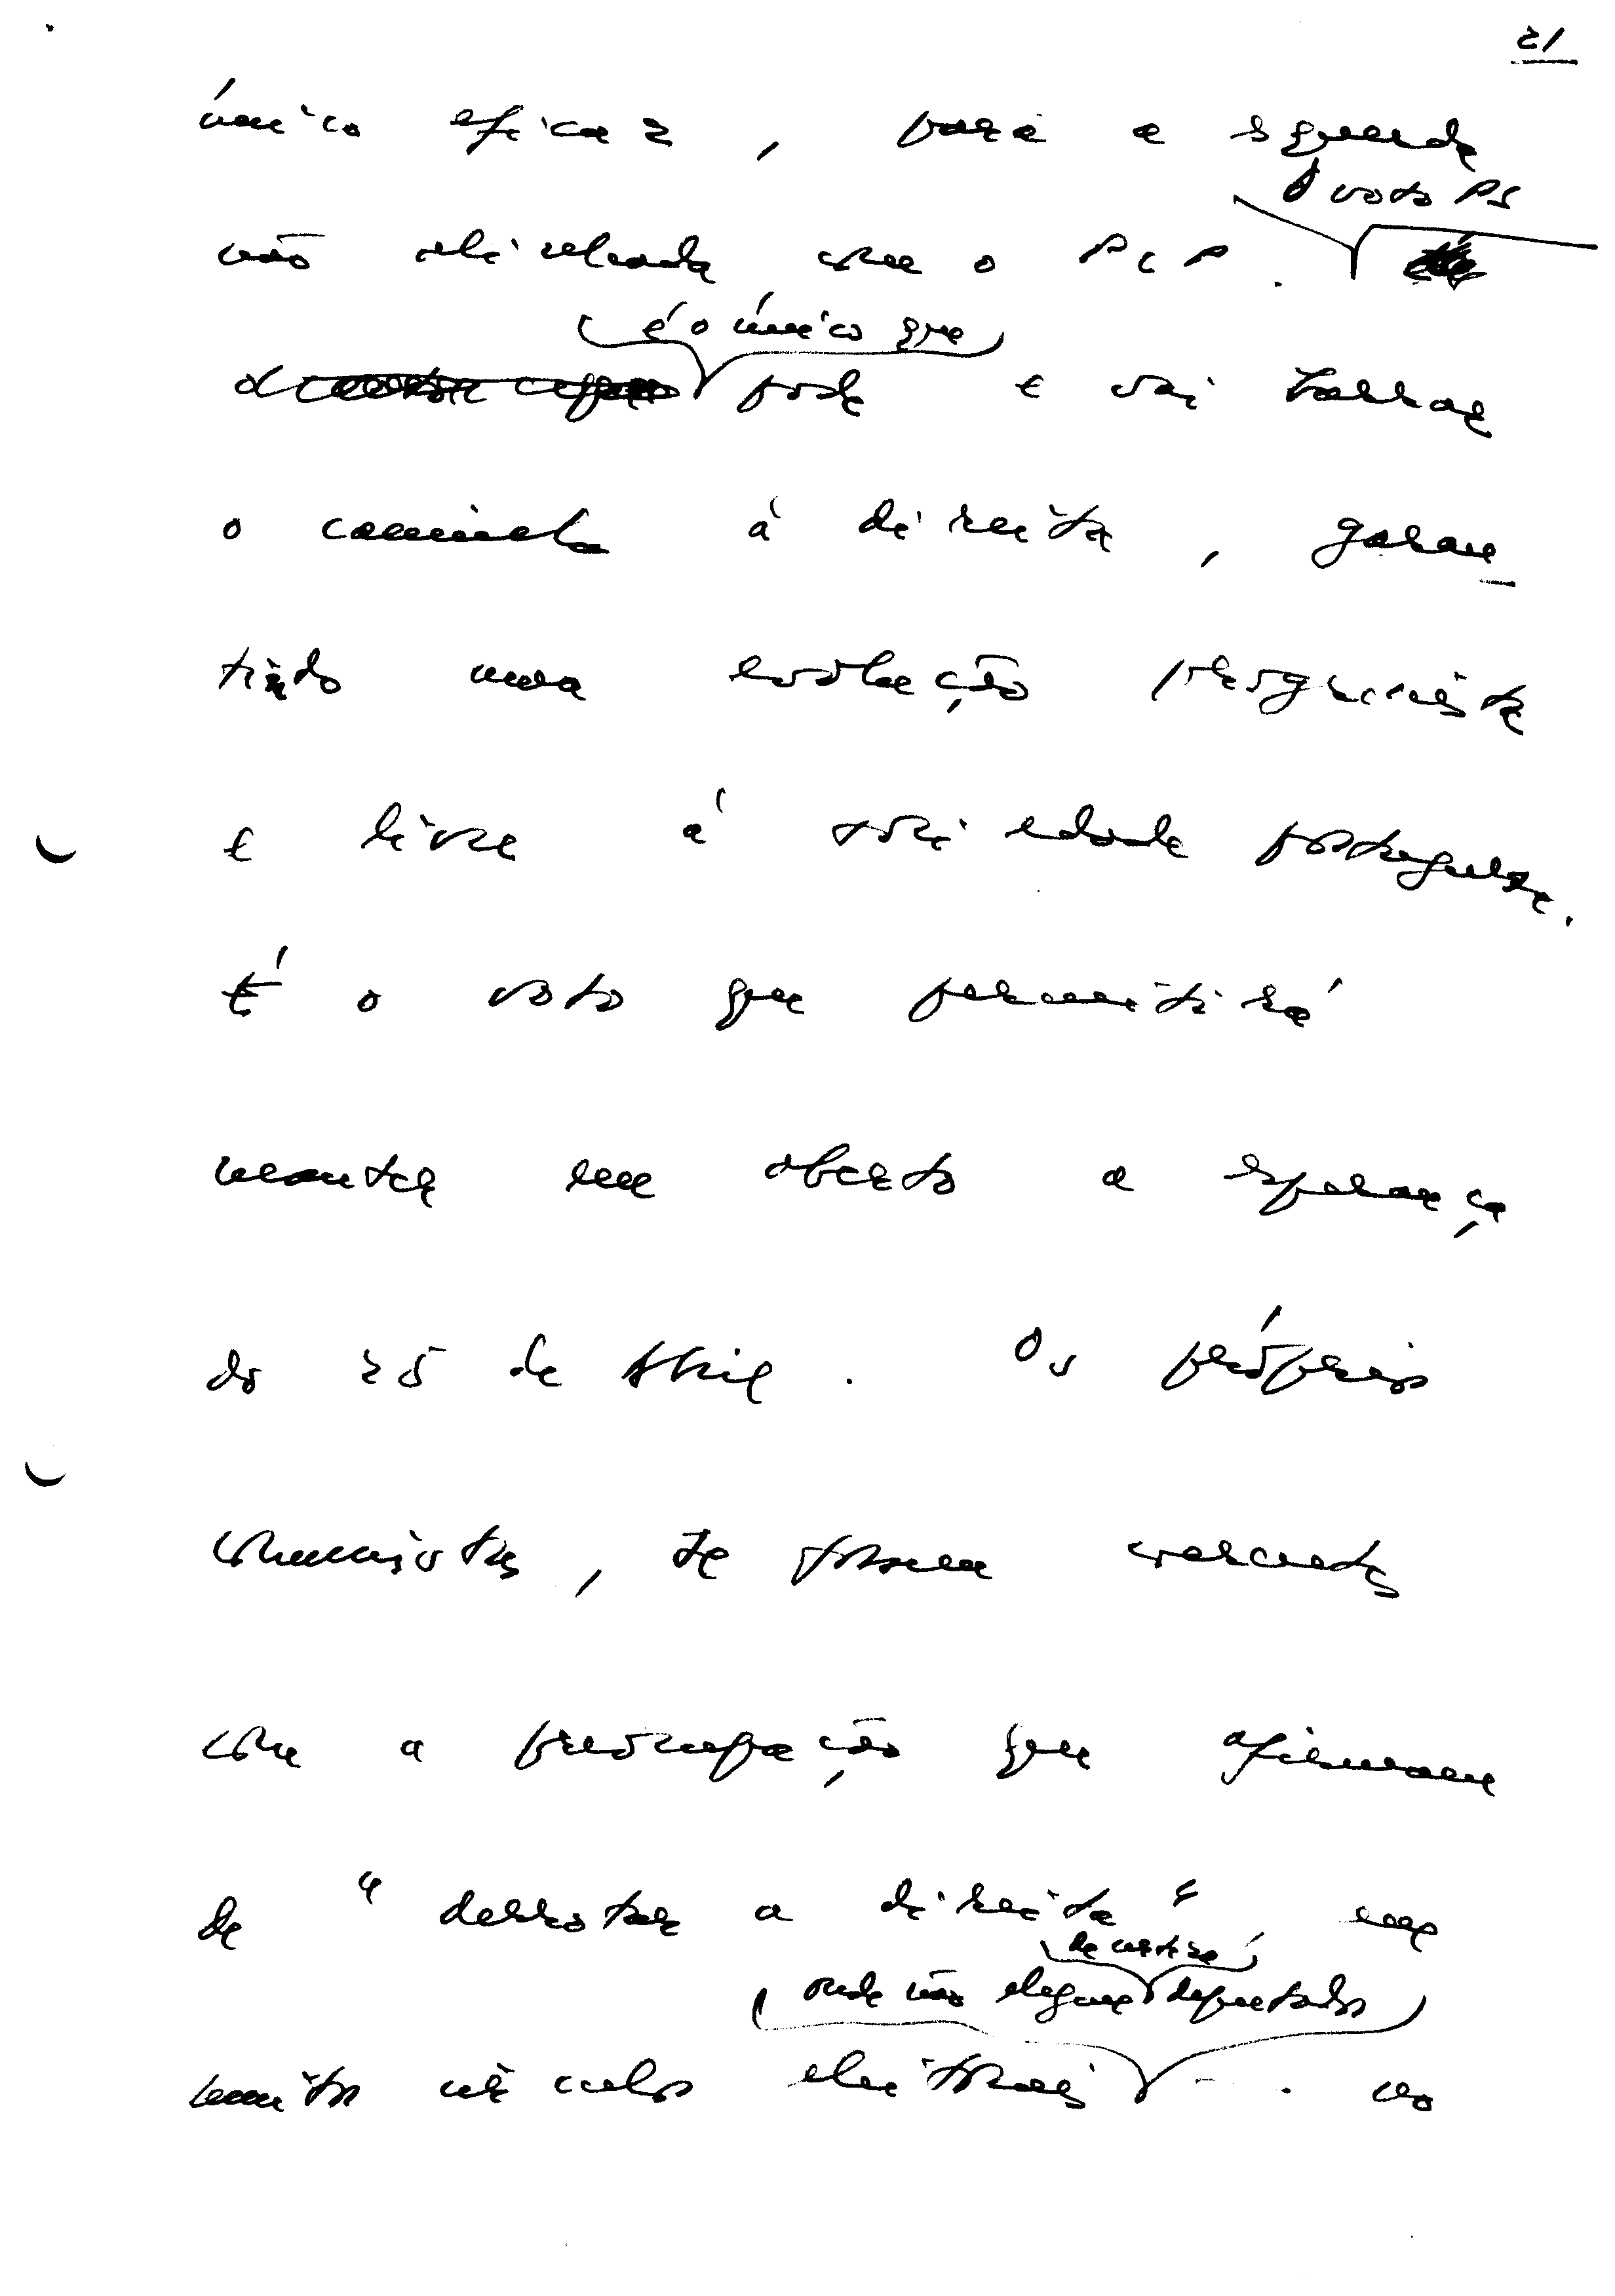 21
único eficaz, para a esquerda
O voto PS
não alinhada com o PCP.
é o único que
pode e vai barrar
o caminho à direita, garan-
tindo uma evolução progressista
e livre à sociedade portuguesa.
É o voto que permitirá
manter em aberto a esperança
do 25 de Abril. Os próprios
comunistas, se fossem coerentes
com a preocupação que afirmam
de "derrotar a direita", em
de certeza
onde não elegem deputados
muitos círculos eleitorais - . no